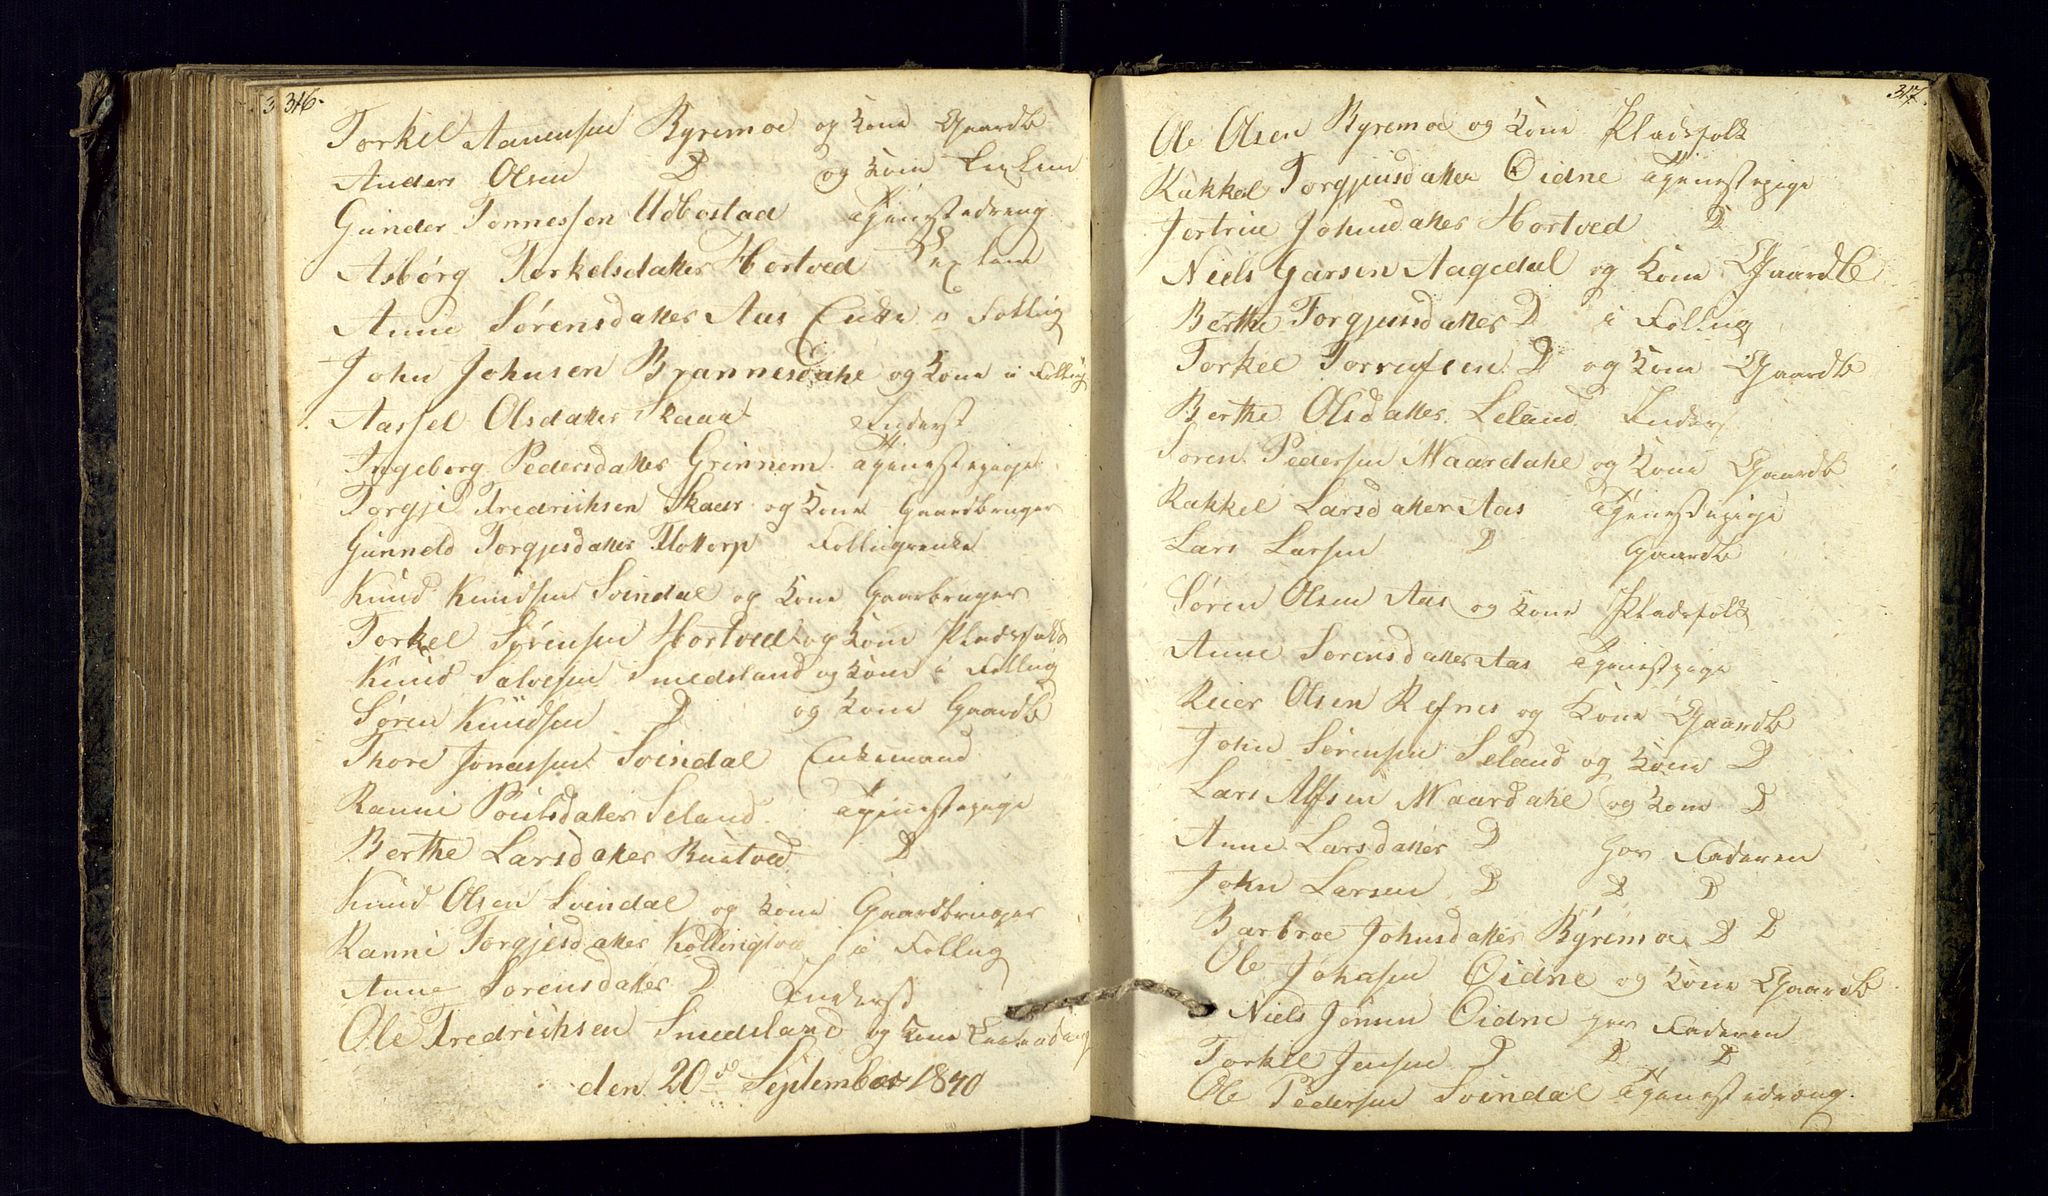 316.
Torkel Aanensen Byremoe og Kone Gaardb
Anders Olsen D og Kone
Gunder Tønnessen Udbostad Tjenestedreng
Asbørg Torkelsdatter Hortved
Anne Sørensdatter Aas Enke i Follug
John Johnsen Brannesdahl og Kone i Follug
Aassel Olsdatter Skaar Inderst
Ingeborg Pedersdatter Grinnem Tjenestepige
Torgje Fredrichsen Skaar og Kone Gaardbruger
Gunneld Torgjesdatter Flottorp Follugenke
Knud Knudsen Svindal og Kone Gaarbruger
Torkel Sørensen Hortved og Kone Pladsfolk
Knud Salvesen Smedsland og Kone i Follug
Søren Knudsen D og Kone Gaardb
Thore Jonassen Svindal Enkemand
Ranni Poulsdatter Seland Tjenestepige
Berthe Larsdatter Bustved D
Knud Olsen Svindal og Kone Gaardbruger
Ranni Torgjesdatter Kollingtvd i Follug
Anne Sørensdatter D Inderst
Ole Fredrichsen Smedsland og Kone
den 20de September 1840
317.
Ole Olsen Byremoe og Kone Pladsfolk
Rakkel Torgjusdatter Øidne Tjenestepige
Jortrue Johnsdatter Hortved D
Niels Garsen Aagedal og Kone Gaardb
Berthe Torgjusdatter D i Follug
Torkel Torresen D og Kone Gaardb
Berthe Olsdatter Leland Inders
Søren Pedersen Maardahl og Kone Gaardb
Rakkel Larsdatter Aas Tjenestepige
Lars Larsen D Gaardb
Søren Olsen Aas og Kone Pladsfolk
Anne Sørensdatter Aas Tjenestepige
Reier Olsen Refnes og Kone Gaardb
John Sørensen Seland og Kone D
Lars Alfsen Maardahl og Kone D
Anne Larsdatter D hos Faderen
John Larsen D D D
Barbroe Johnsdatter Byremoe D D
Ole Johnsen Øidne og Kone Gaardb
Niels Jonsen Øidne hos Faderen
Torkel Jensen D D D
Ole Pedersen Svindal Tjenestedreng.